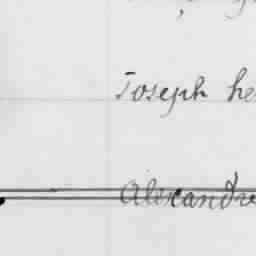 Joseph he
Alexandre